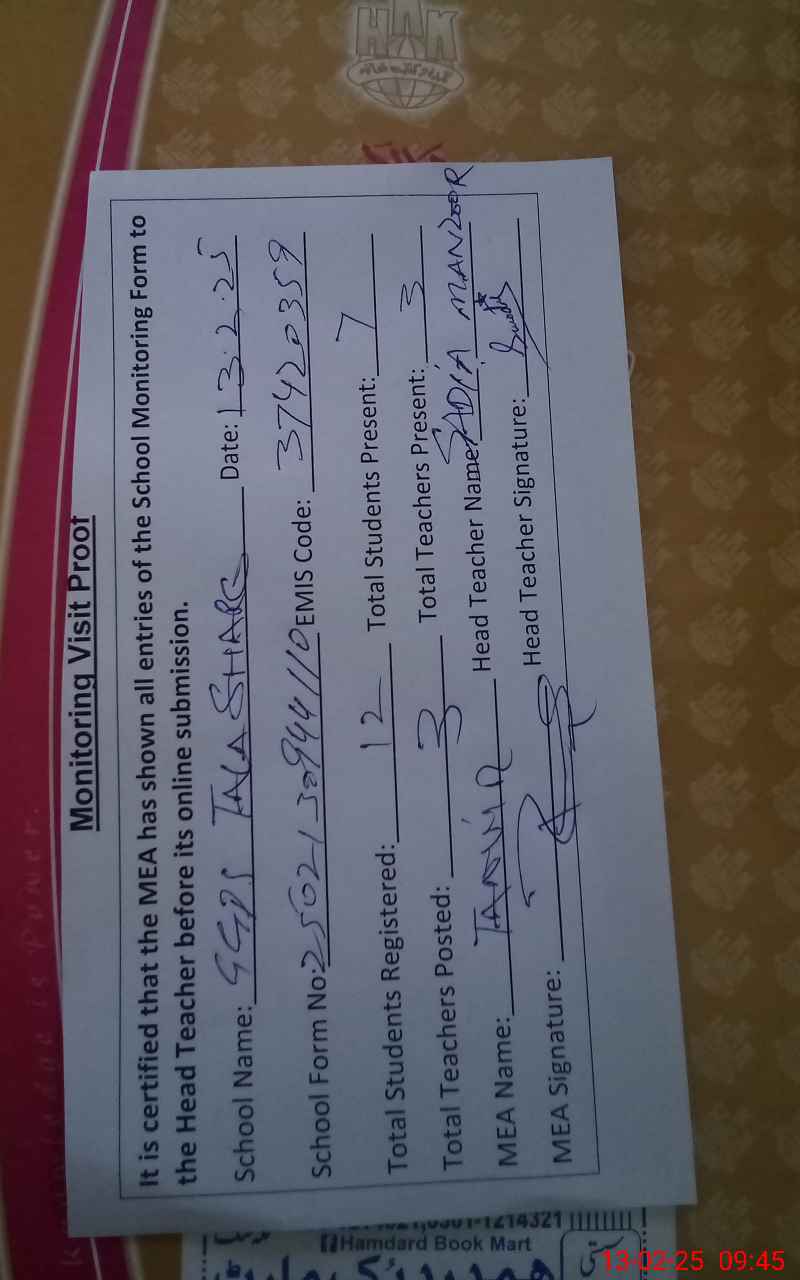 HAK
Knowledge is Power.
Monitoring Visit Proof
It is certified that the MEA has shown all entries of the School Monitoring Form to
the Head Teacher before its online submission.
School Name: GGPS Date: 13.2.25
School Form No: EMIS Code: 37420359
Total Students Registered: 12 Total Students Present: 7
Total Teachers Posted: 3 Total Teachers Present: 3
MEA Name: Head Teacher Name: SADIA MANZOOR
MEA Signature: Head Teacher Signature:
1214321
Hamdard Book Mart
13-02-25 09:45